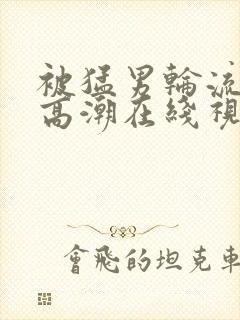 被猛男輪流
高潮在綫視
會飛的坦克車